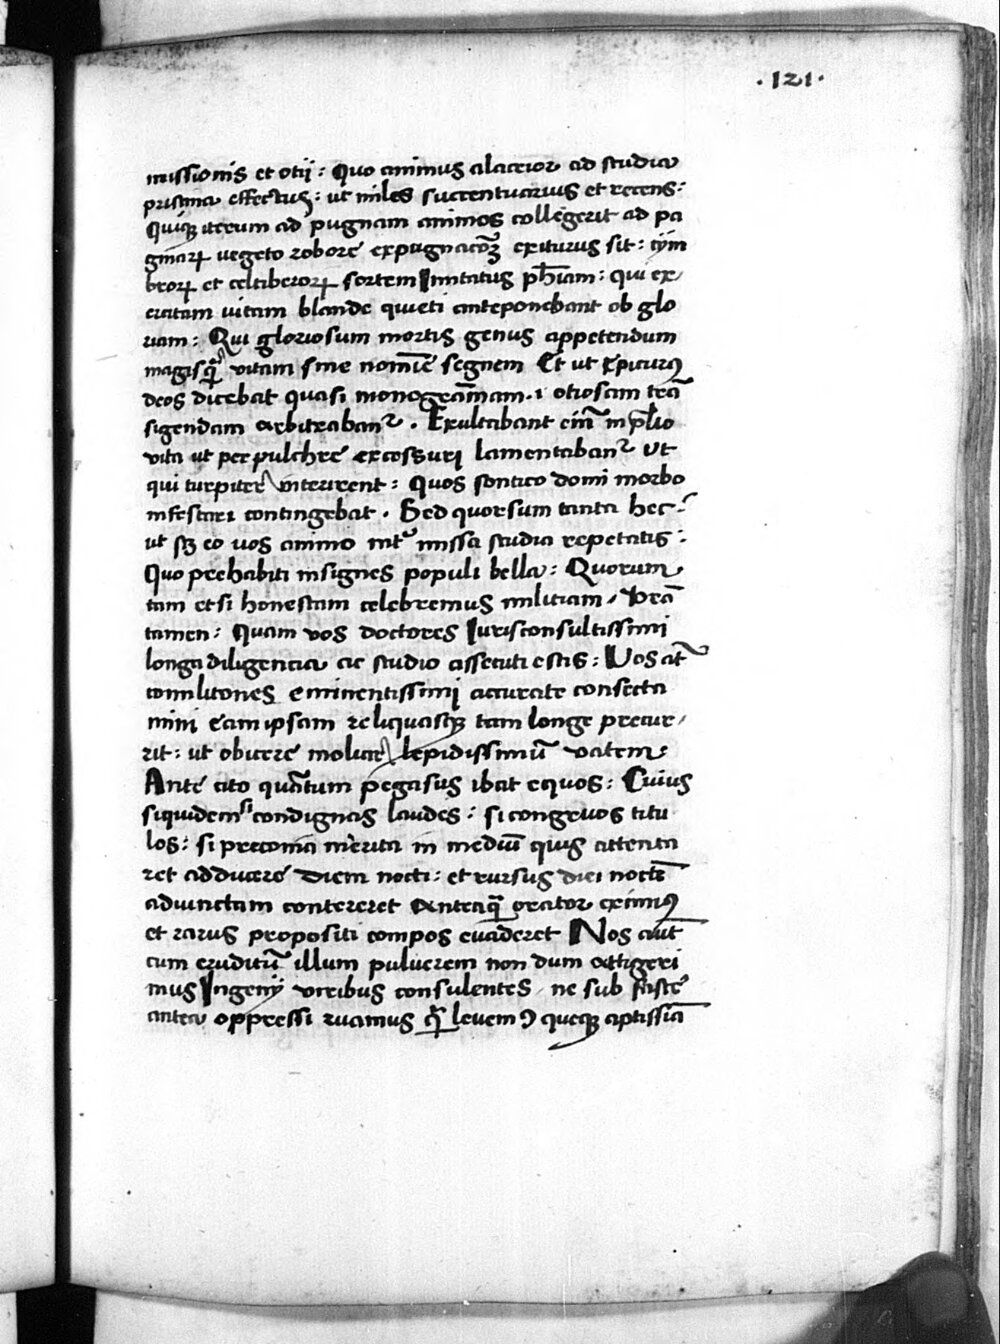 .121.
missionis et otij : Quo animus alacrior ad studia
pristina effectus : ut miles succentuarius et recens :
Quiq; iterum ad pugnam animos collegerit ad pa
ginaꝝ uegeto robore expugnacōꝫ exiturus sit : cym
breoꝝ et celtiberoꝝ sortem Imitatus ph̄iam : qui ex
citatam uitam blande quieti anteponebant ob glo
riam : Qui gloriosum mortis genus appetendum
magisq̄ vitam sine nomīe segnem Et ut Epicurꝰ
deos dicebat quasi monogrāmam .i. otiosam trā
sigendam arbitraban᷑ . Exultabant em̄ in p̄lio
vita ut per pulchre excessuri lamentaban᷑ Ut
qui turpiter interirent : Quos sontico domi morbo
infestari contingebat . Sed quorsum tanta hec :
ut sꝫ eo uos animo int᷑missa studia repetatis :
Quo prehabiti insignes populi bella : Quorum
tam et si honestam celebremus militiam / Vr̄a
tamen : Quam vos doctores Jurisconsultissimi
longa diligencia ac studio assecuti estis : Vos at᷑
comilitones eminentissimi accurate consecta
mini eam ipsam reliquasq; tam longe precur /
rit : ut obuere molute lepidissimū vatem
Ante cito quātum pegasus ibat equos : Cuius
siquidem si condignas laudes : si congruos titu
los : si preconia merita in mediū quis attenta
ret adducere diem nocti : et rursus diei nocte
adiunctam contereret Anteaq̄ orator eximiꝰ
et rarus propositi compos euaderet Nos aut̄
cum eruditū illum puluerem non dum attigeri
mus Ingenij viribus consulentes ne sub fasce
antea oppressi ruamus q̄ leuem ꝯ queq; aptissīa